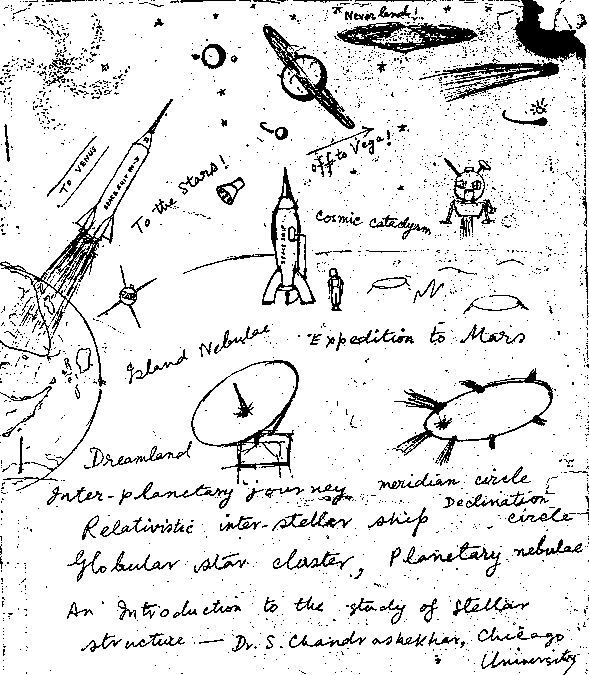 Never land!
off to Vega!
TO VENUS
To the Stars!
cosmic cataclysm
Expedition to Mars
Island Nebulae
Dreamland
Inter-planetary journey meridian circle
Relativistic inter-stellar ship Declination circle
Globular star cluster, Planetary nebulae
An Introduction to the study of stellar
structure — Dr. S. Chandrashekhar, Chicago
University